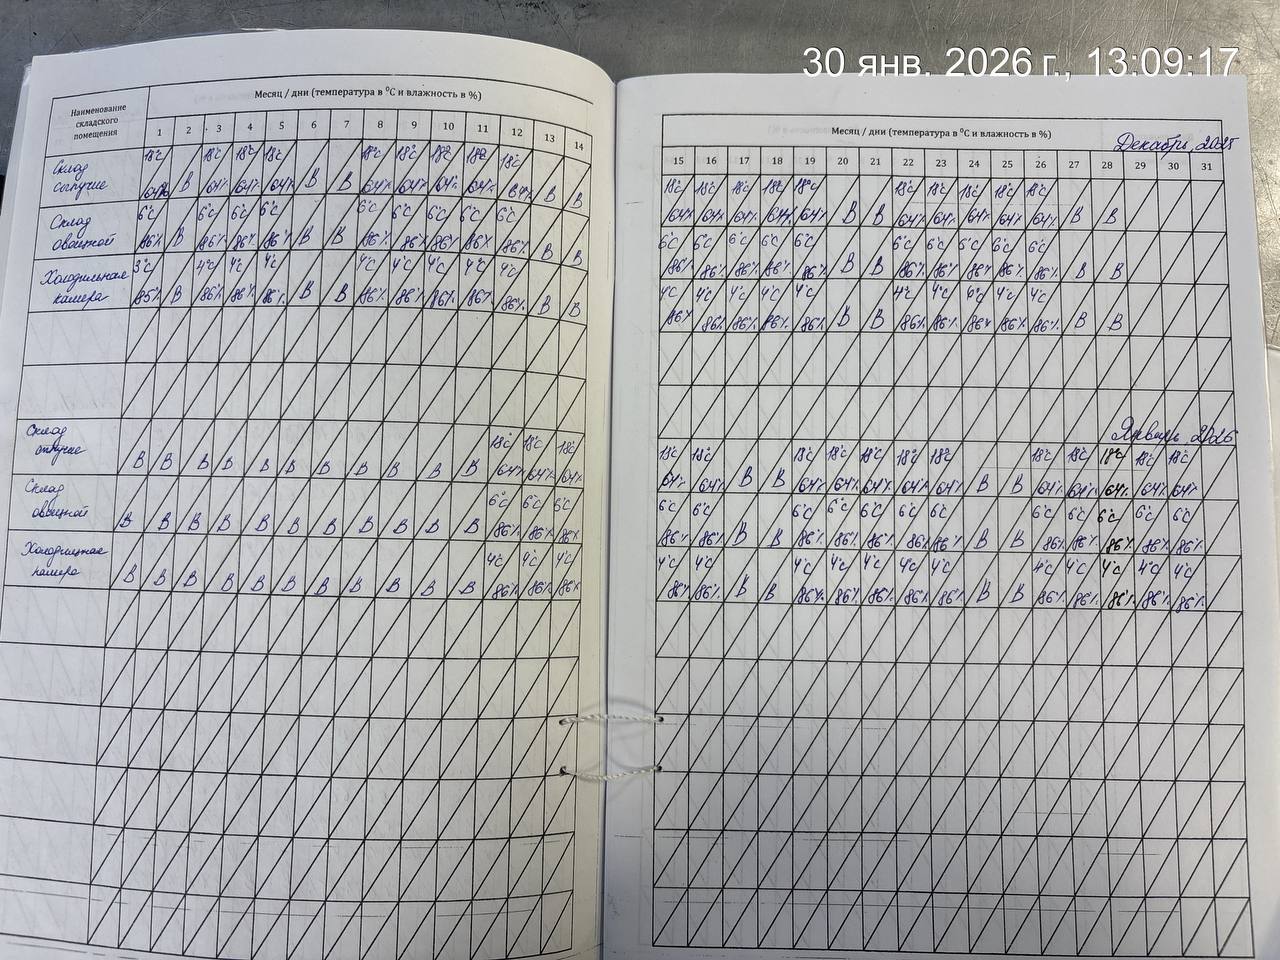 30 янв. 2026 г., 13:09:17
Наименование
складского
помещения
Месяц / дни (температура в ⁰С и влажность в %)
1 2 3 4 5 6 7 8 9 10 11 12 13 14
Склад
18°С 18°С 18°С 18°С 18°С 18°С 18°С 18°С 18°С
64% В 64% 64% 64% В В 64% 64% 64% 64% 64% В В
Склад
овощной
6°С 6°С 6°С 6°С 6°С 6°С 6°С 6°С 6°С
86% В 86% 86% 86% В В 86% 86% 86% 86% 86% В В
Холодильная
камера
3°С 4°С 4°С 4°С 4°С 4°С 4°С 4°С 4°С
85% В 86% 86% 86% В В 86% 86% 86% 86% 86% В В
Склад
18°С 18°С 18°С
В В В В В В В В В В В 64% 64% 64%
Склад
овощной
6°С 6°С 6°С
В В В В В В В В В В В 86% 86% 86%
камера
4°С 4°С 4°С
В В В В В В В В В В В 86% 86% 86%
Месяц / дни (температура в ⁰С и влажность в %)
Декабрь, 2025
15 16 17 18 19 20 21 22 23 24 25 26 27 28 29 30 31
18°С 18°С 18°С 18°С 18°С 18°С 18°С 18°С 18°С 18°С
64% 64% 64% 64% 64% В В 64% 64% 64% 64% 64% В В
6°С 6°С 6°С 6°С 6°С 6°С 6°С 6°С 6°С 6°С
86% 86% 86% 86% 86% В В 86% 86% 86% 86% 86% В В
4°С 4°С 4°С 4°С 4°С 4°С 4°С 4°С 4°С 4°С
86% 86% 86% 86% 86% В В 86% 86% 86% 86% 86% В В
Январь 2026
18°С 18°С 18°С 18°С 18°С 18°С 18°С 18°С 18°С 18°С 18°С 18°С
64% 64% В В 64% 64% 64% 64% 64% В В 64% 64% 64% 64% 64%
6°С 6°С 6°С 6°С 6°С 6°С 6°С 6°С 6°С 6°С 6°С 6°С
86% 86% В В 86% 86% 86% 86% 86% В В 86% 86% 86% 86% 86%
4°С 4°С 4°С 4°С 4°С 4°С 4°С 4°С 4°С 4°С 4°С 4°С
86% 86% В В 86% 86% 86% 86% 86% В В 86% 86% 86% 86% 86%